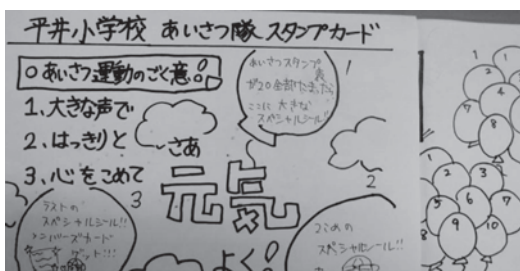 平井小学校 あいさつ隊 スタンプカード
○あいさつ運動のごく意!!
1、大きな声で
2、はっきりと
3、心をこめて
あいさつスタンプ
が20全部たまったら
ここに大きな
スペシャルシール!!
1
さあ
元気
よく!
2
3
ラストの
スペシャルシール!!
ゲット!!!
2こめの
スペシャルシール!!
1
2
1
2
3
4
5
6
7
8
9
10